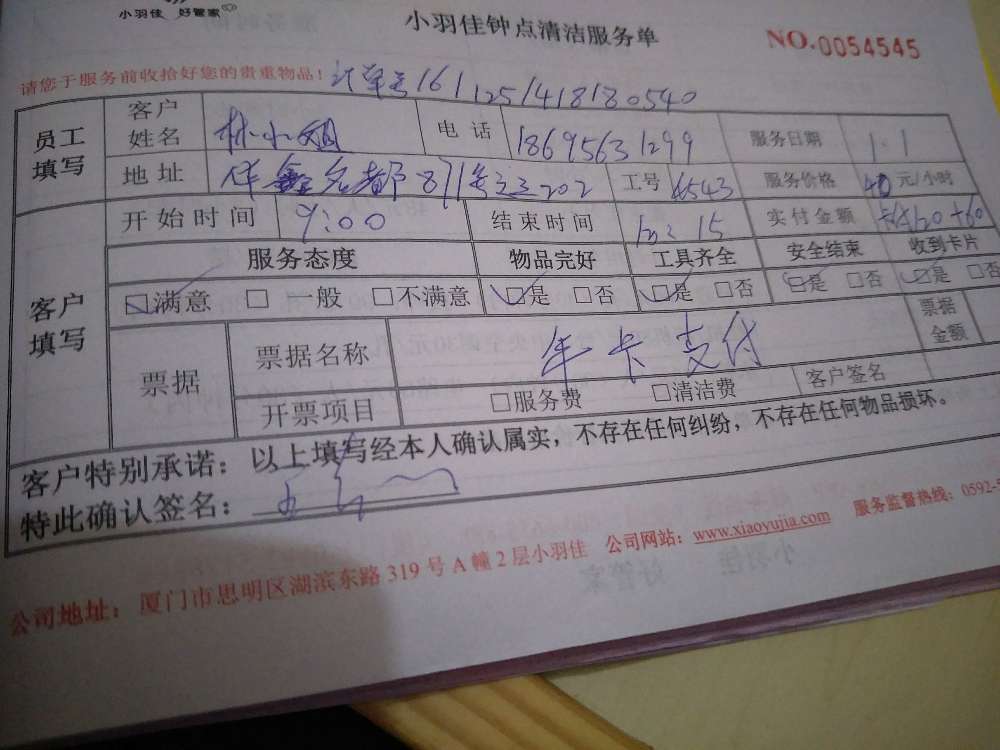 小羽佳 好管家
小羽佳钟点清洁服务单
NO.0054545
请您于服务前收拾好您的贵重物品! 订单号1611251418180540
员工填写 客户姓名 林小姐 电话 18695631299 服务日期 1.1
地址 名都871号之三202 工号 4543 服务价格 40元/小时
客户填写 开始时间 9:00 结束时间 12:15 实付金额 120+60
服务态度 物品完好 工具齐全 安全结束 收到卡片
□满意 □一般 □不满意 □是 □否 □是 □否 □是 □否 □是 □否
票据 票据名称 年卡支付 票据金额
开票项目 □服务费 □清洁费 客户签名
客户特别承诺:以上填写经本人确认属实,不存在任何纠纷,不存在任何物品损坏。
特此确认签名:
公司地址:厦门市思明区湖滨东路319号A幢2层小羽佳 公司网站:www.xiaoyujia.com 服务监督热线:0592-5